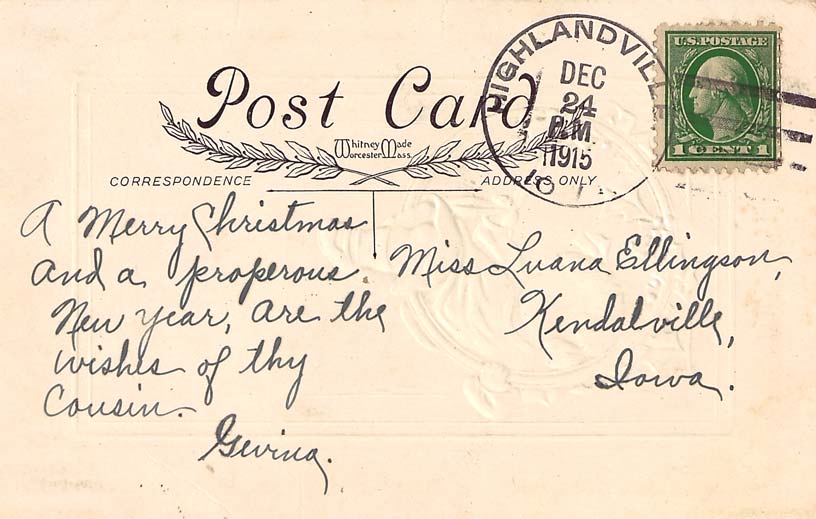 HIGHLANDVILLE
DEC
24
P.M
1915
U.S. POSTAGE
1 CENT 1
Post Card
Whitney Made
Worcester Mass.
CORRESPONDENCE
ADDRESS ONLY
A Merry Christmas
and a properous
New year, are the
wishes of thy
Cousin.
Miss Luana Ellingson,
Kendalville,
Iowa.